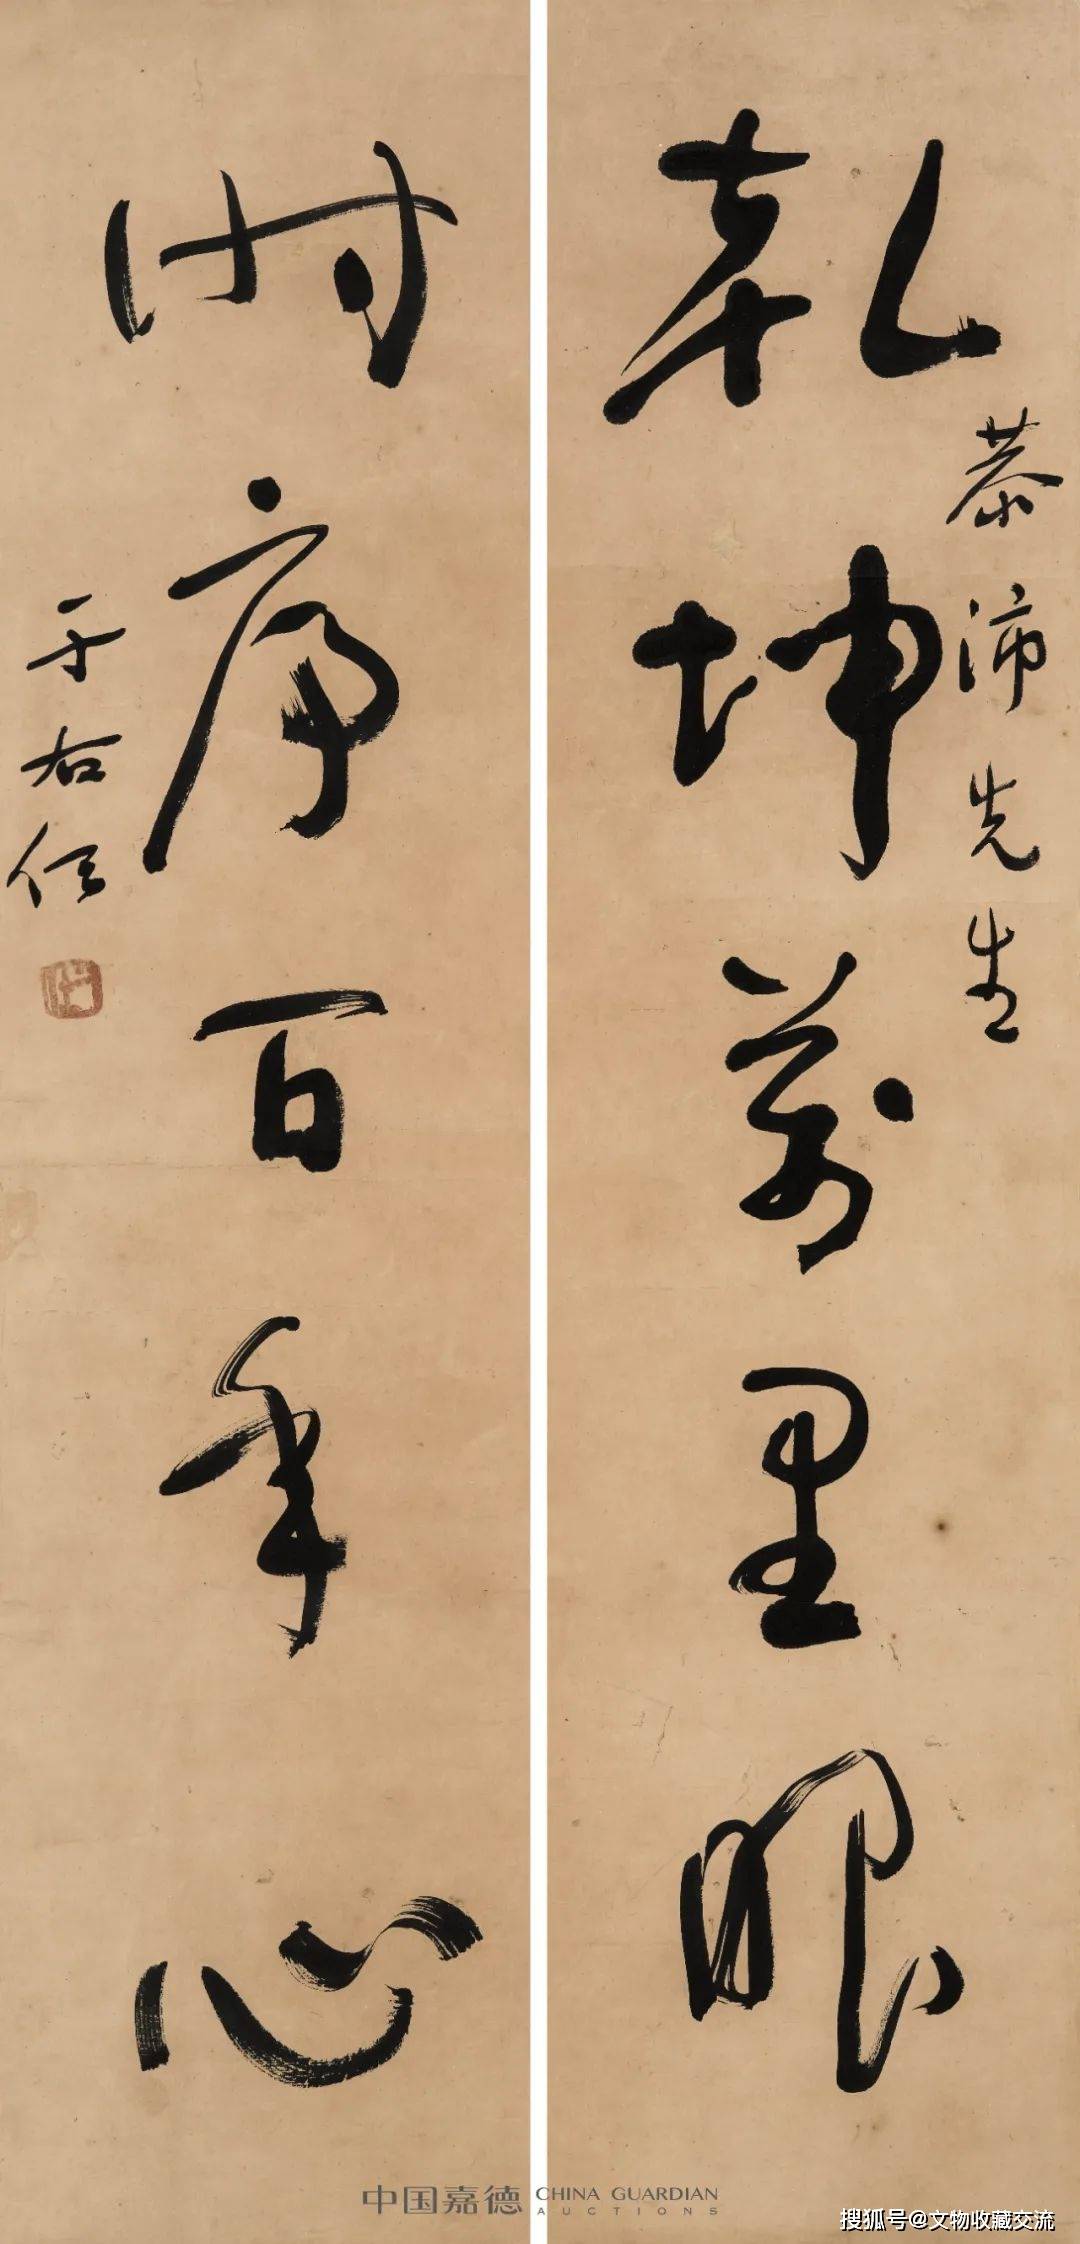 乾坤萬里眼
恭沛先生
时序百年心
于右任
中国嘉德 CHINA GUARDIAN
AUCTIONS
搜狐号@文物收藏交流